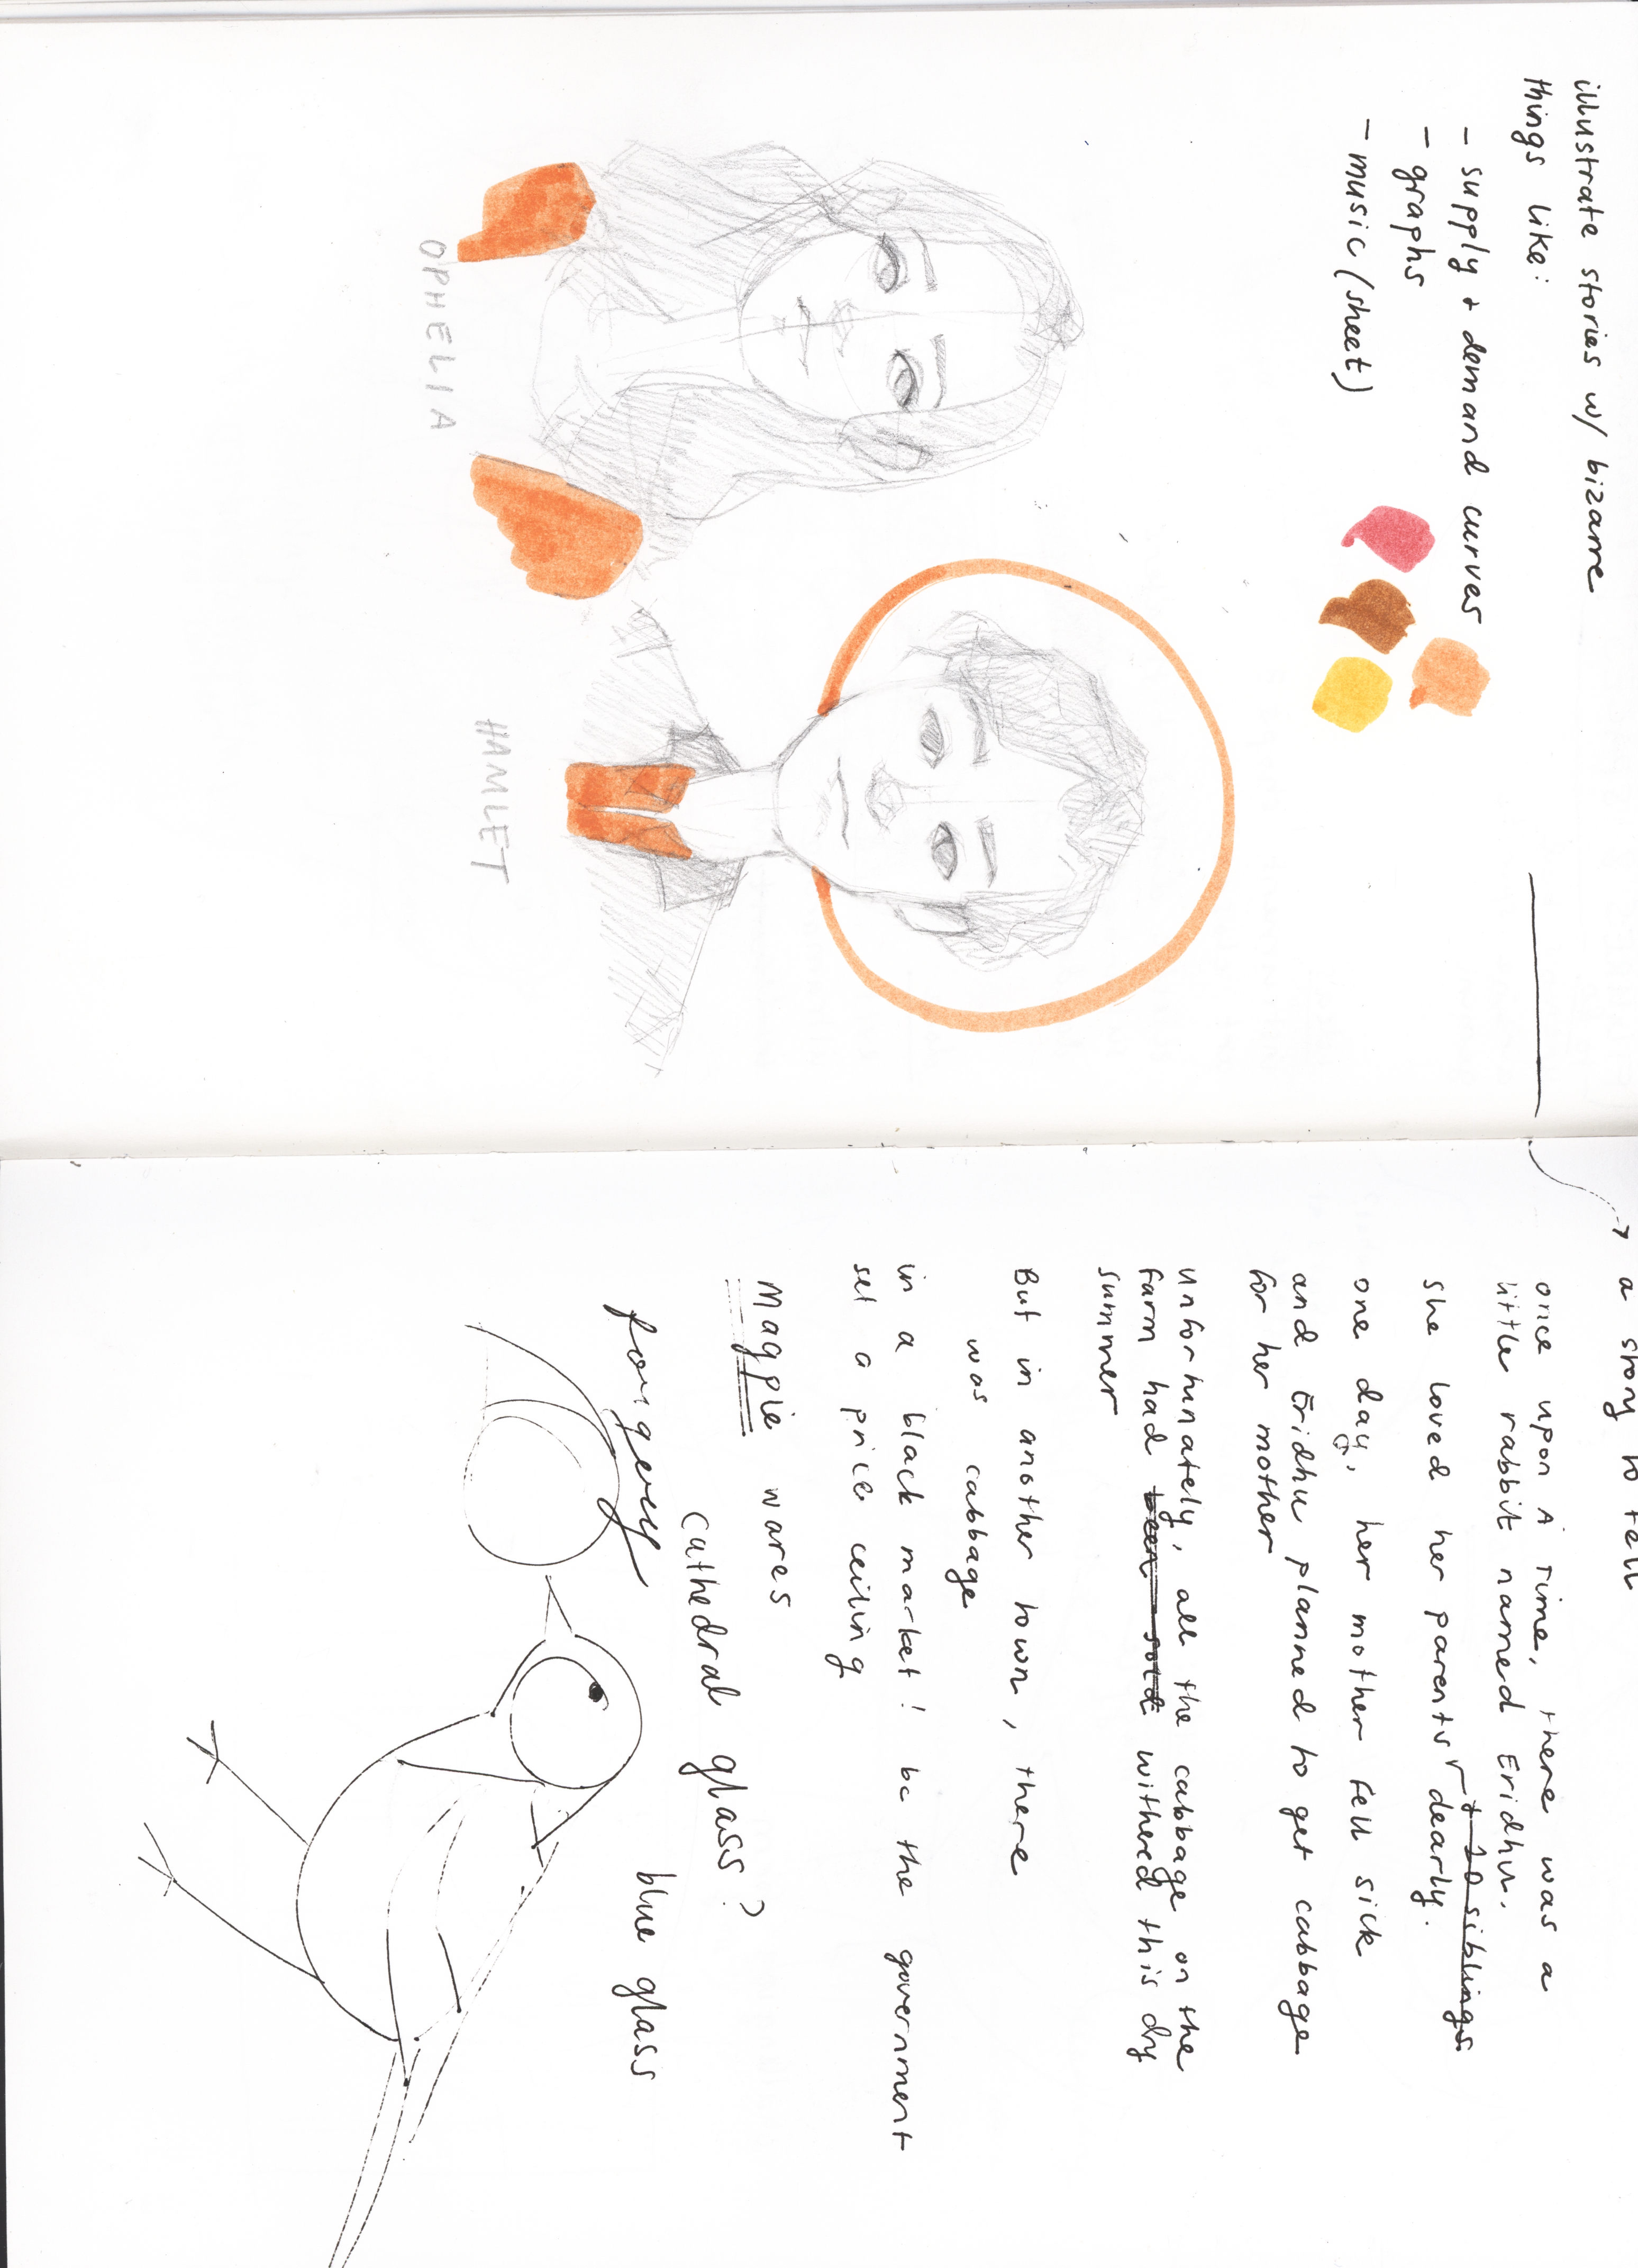 illustrate stories w/ bizarre
things like:
- supply + demand curves
- graphs
- music (sheet)
OPHELIA
HAMLET
a story to tell
once upon A TIME, there was a
little rabbit named Eridhu.
+ 20 siblings
she loved her parents dearly.
one day, her mother fell sick
and Eridhu planned to get cabbage
for her mother
unfortunately, all the cabbage on the
farm had been sold withered this dry
summer
But in another town, there
was cabbage
in a black market! bc the government
set a price ceiling
Magpie wares
cathedral glass?
blue glass